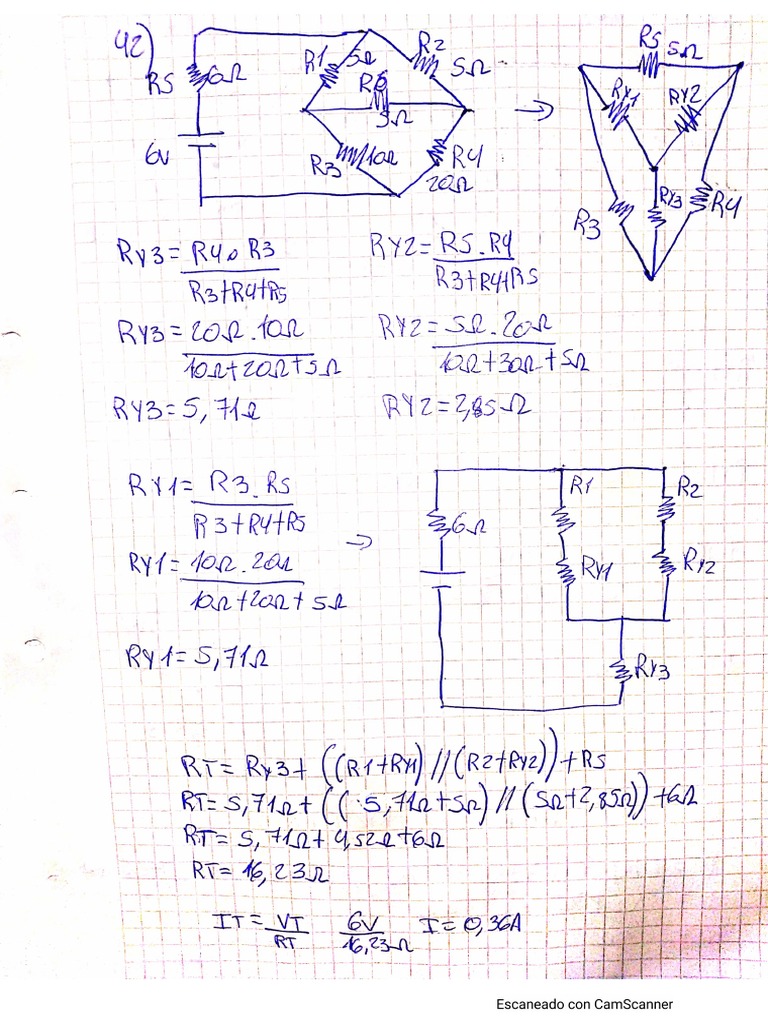 42)
R5 6Ω
6V
R1 5Ω
R2 5Ω
R5 5Ω
R3 10Ω
R4 20Ω
→
R5 5Ω
RY1
RY2
R3
RY3
R4
RY3 = R4 . R3
R3+R4+R5
RY2 = R5 . R4
R3+R4+R5
RY3 = 20Ω . 10Ω
10Ω+20Ω+5Ω
RY2 = 5Ω . 20Ω
10Ω+30Ω+5Ω
RY3 = 5,71Ω
RY2 = 2,85Ω
RY1 = R3 . R5
R3+R4+R5
RY1 = 10Ω . 20Ω
10Ω+20Ω+5Ω
RY1 = 5,71Ω
→
6Ω
R1
R2
RY1
RY2
RY3
RT = RY3 + ((R1+RY1) // (R2+RY2)) + R5
RT = 5,71Ω + ((5,71Ω+5Ω) // (5Ω+2,85Ω)) + 6Ω
RT = 5,71Ω + 4,52Ω + 6Ω
RT = 16,23Ω
IT = VT
RT
6V
16,23Ω
I = 0,36A
Escaneado con CamScanner